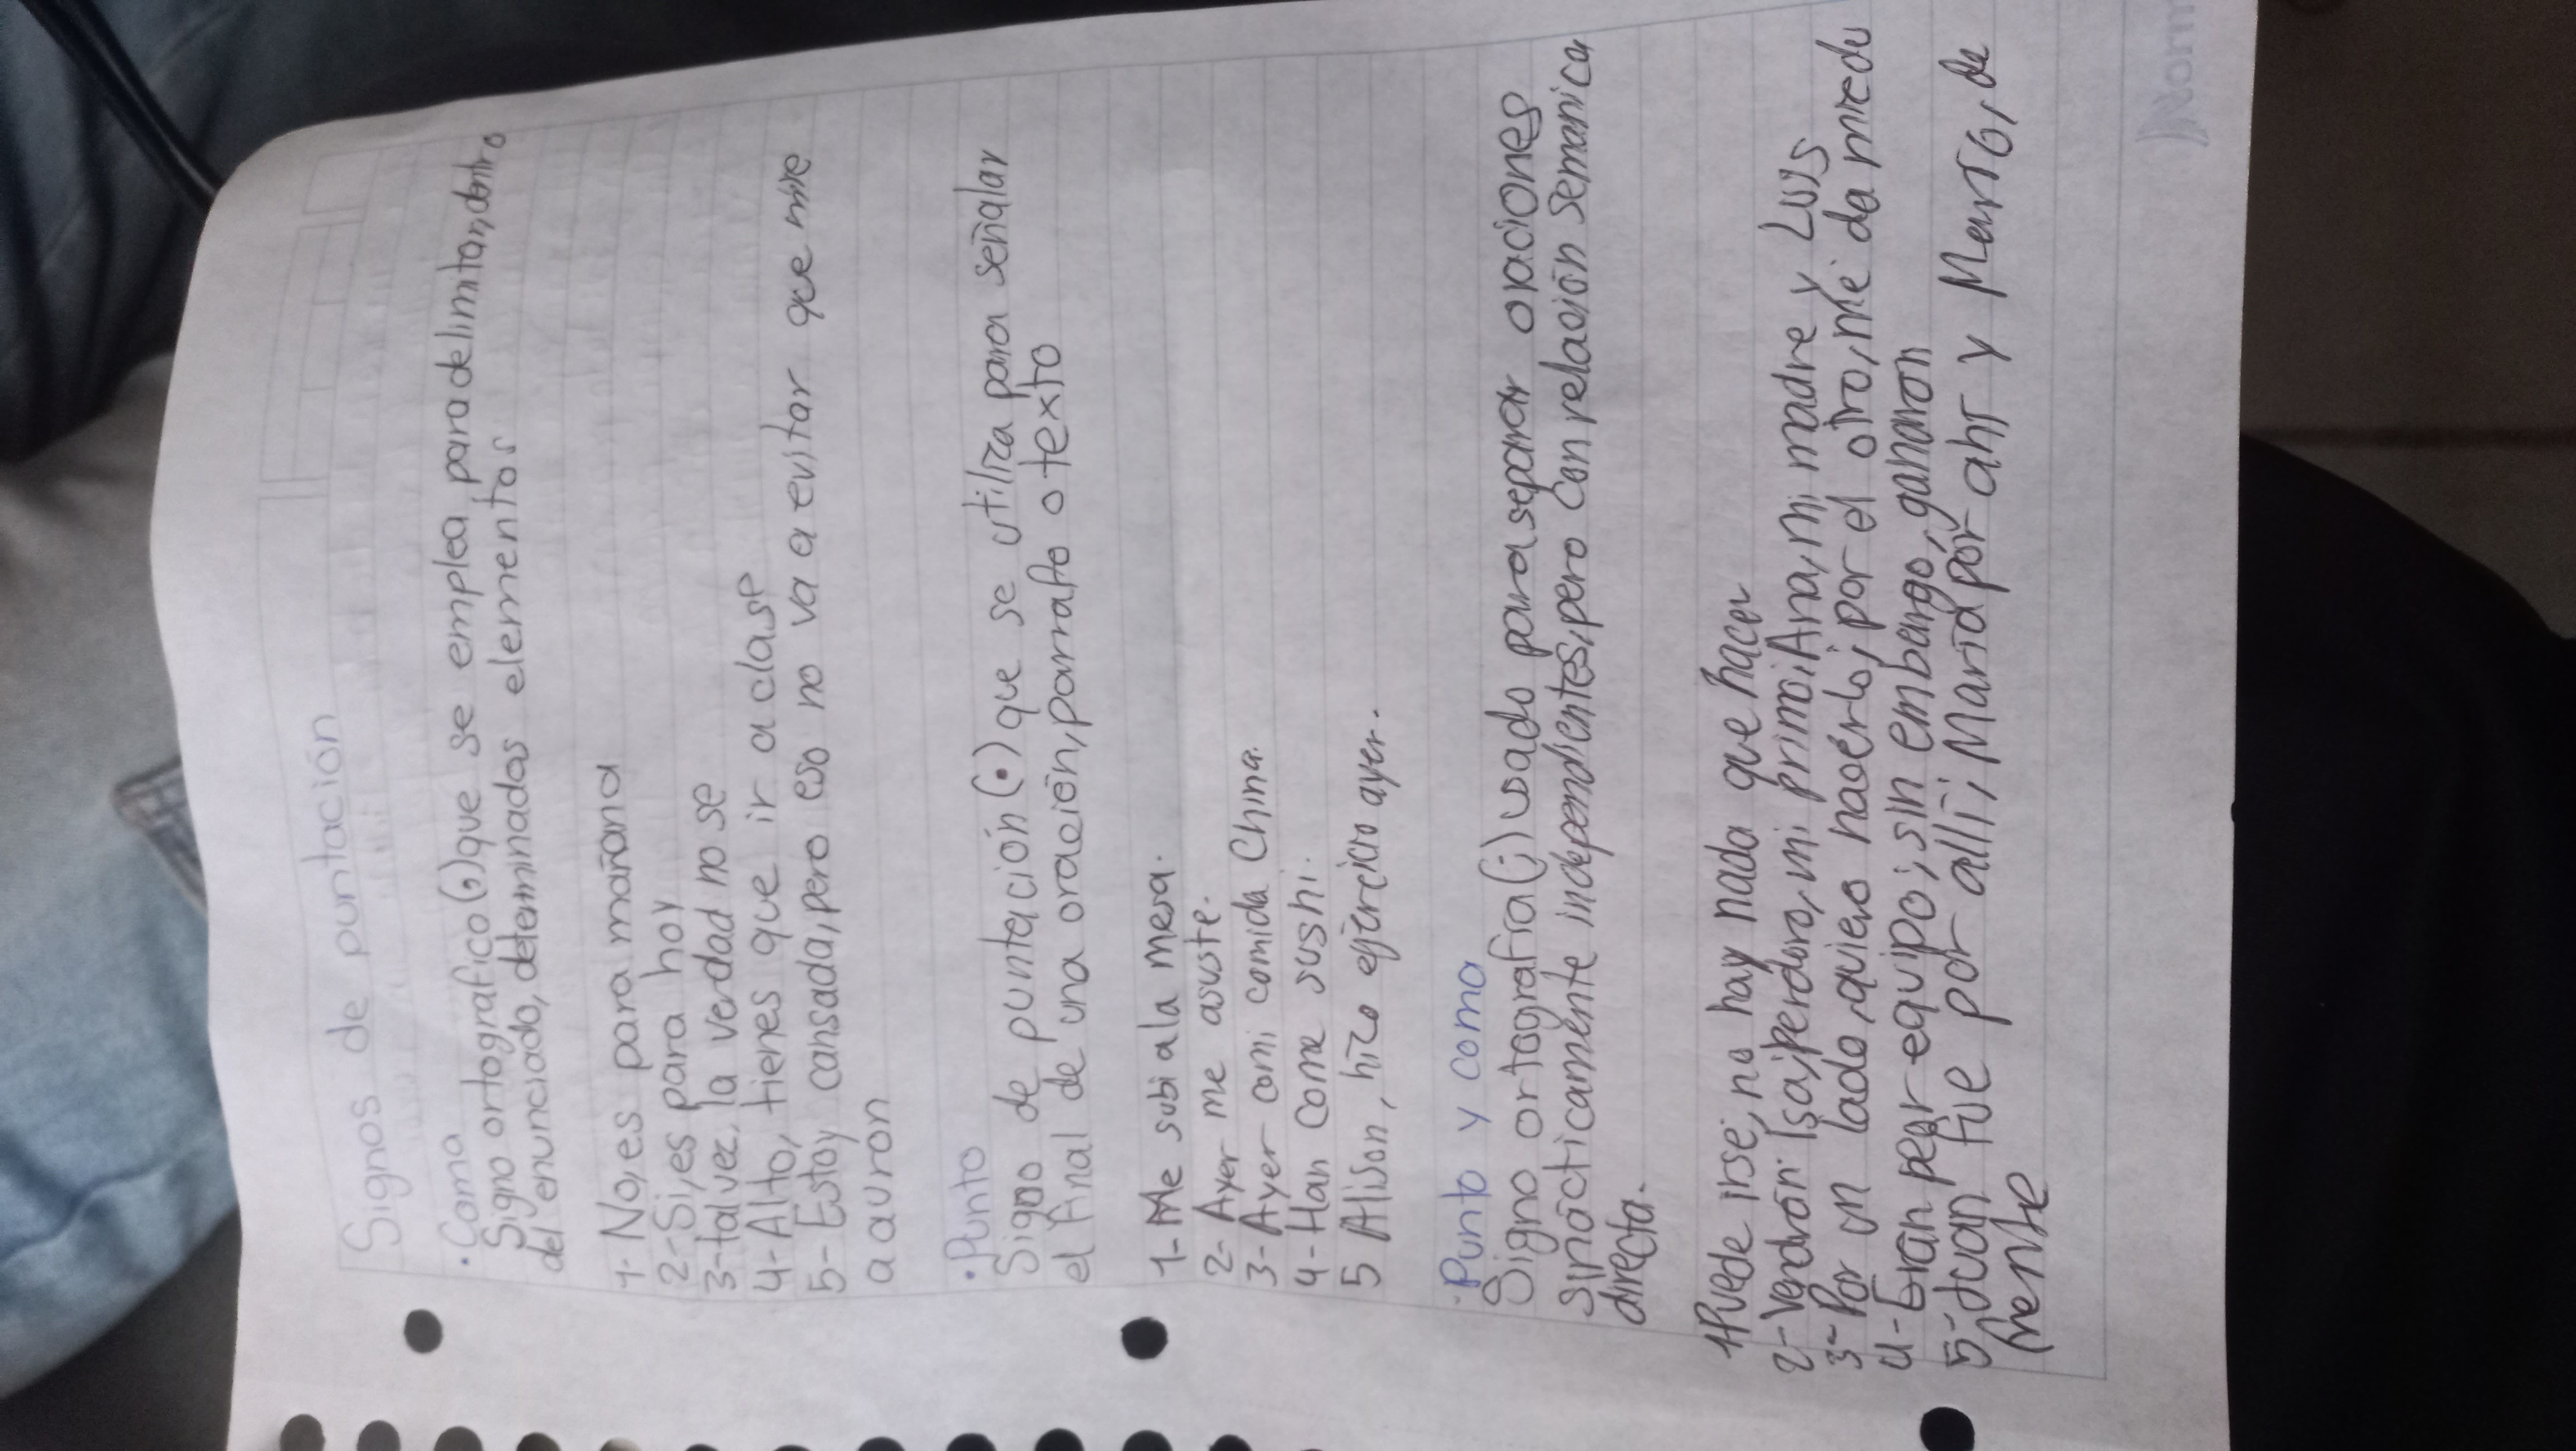 Signos de puntación
• Coma
Signo ortografico (,) que se emplea para delimitar, dentro
del enunciado, determinados elementos
1- No, es para mañana
2- Si, es para hoy
3- tal vez, la verdad no se
4- Alto, tienes que ir a clase
5- Estoy cansada, pero eso no va a evitar que mire
a auron
• Punto
Signo de puntación (.) que se utiliza para señalar
el final de una oración, parrafo o texto
1- Me subi a la mesa.
2- Ayer me asuste.
3- Ayer comi comida China.
4- Han come sushi.
5 Alison, hizo ejercicio ayer.
· Punto y coma
Signo ortografia (;) usado para separar oraciones
sinácticamente independientes, pero con relación semanica
directa.
1 Puede irse; no hay nada que hacer
2- Vendrán: Isa; Perdoro, mi primo; Ana, mi madre y Luis
3- Por un lado, quiero hacerlo; por el otro, me da miedo
4- Eran peor equipo; sin embargo, ganaron
5- Juan fue por allí; María por ahí y Mario, de
frente
Norm